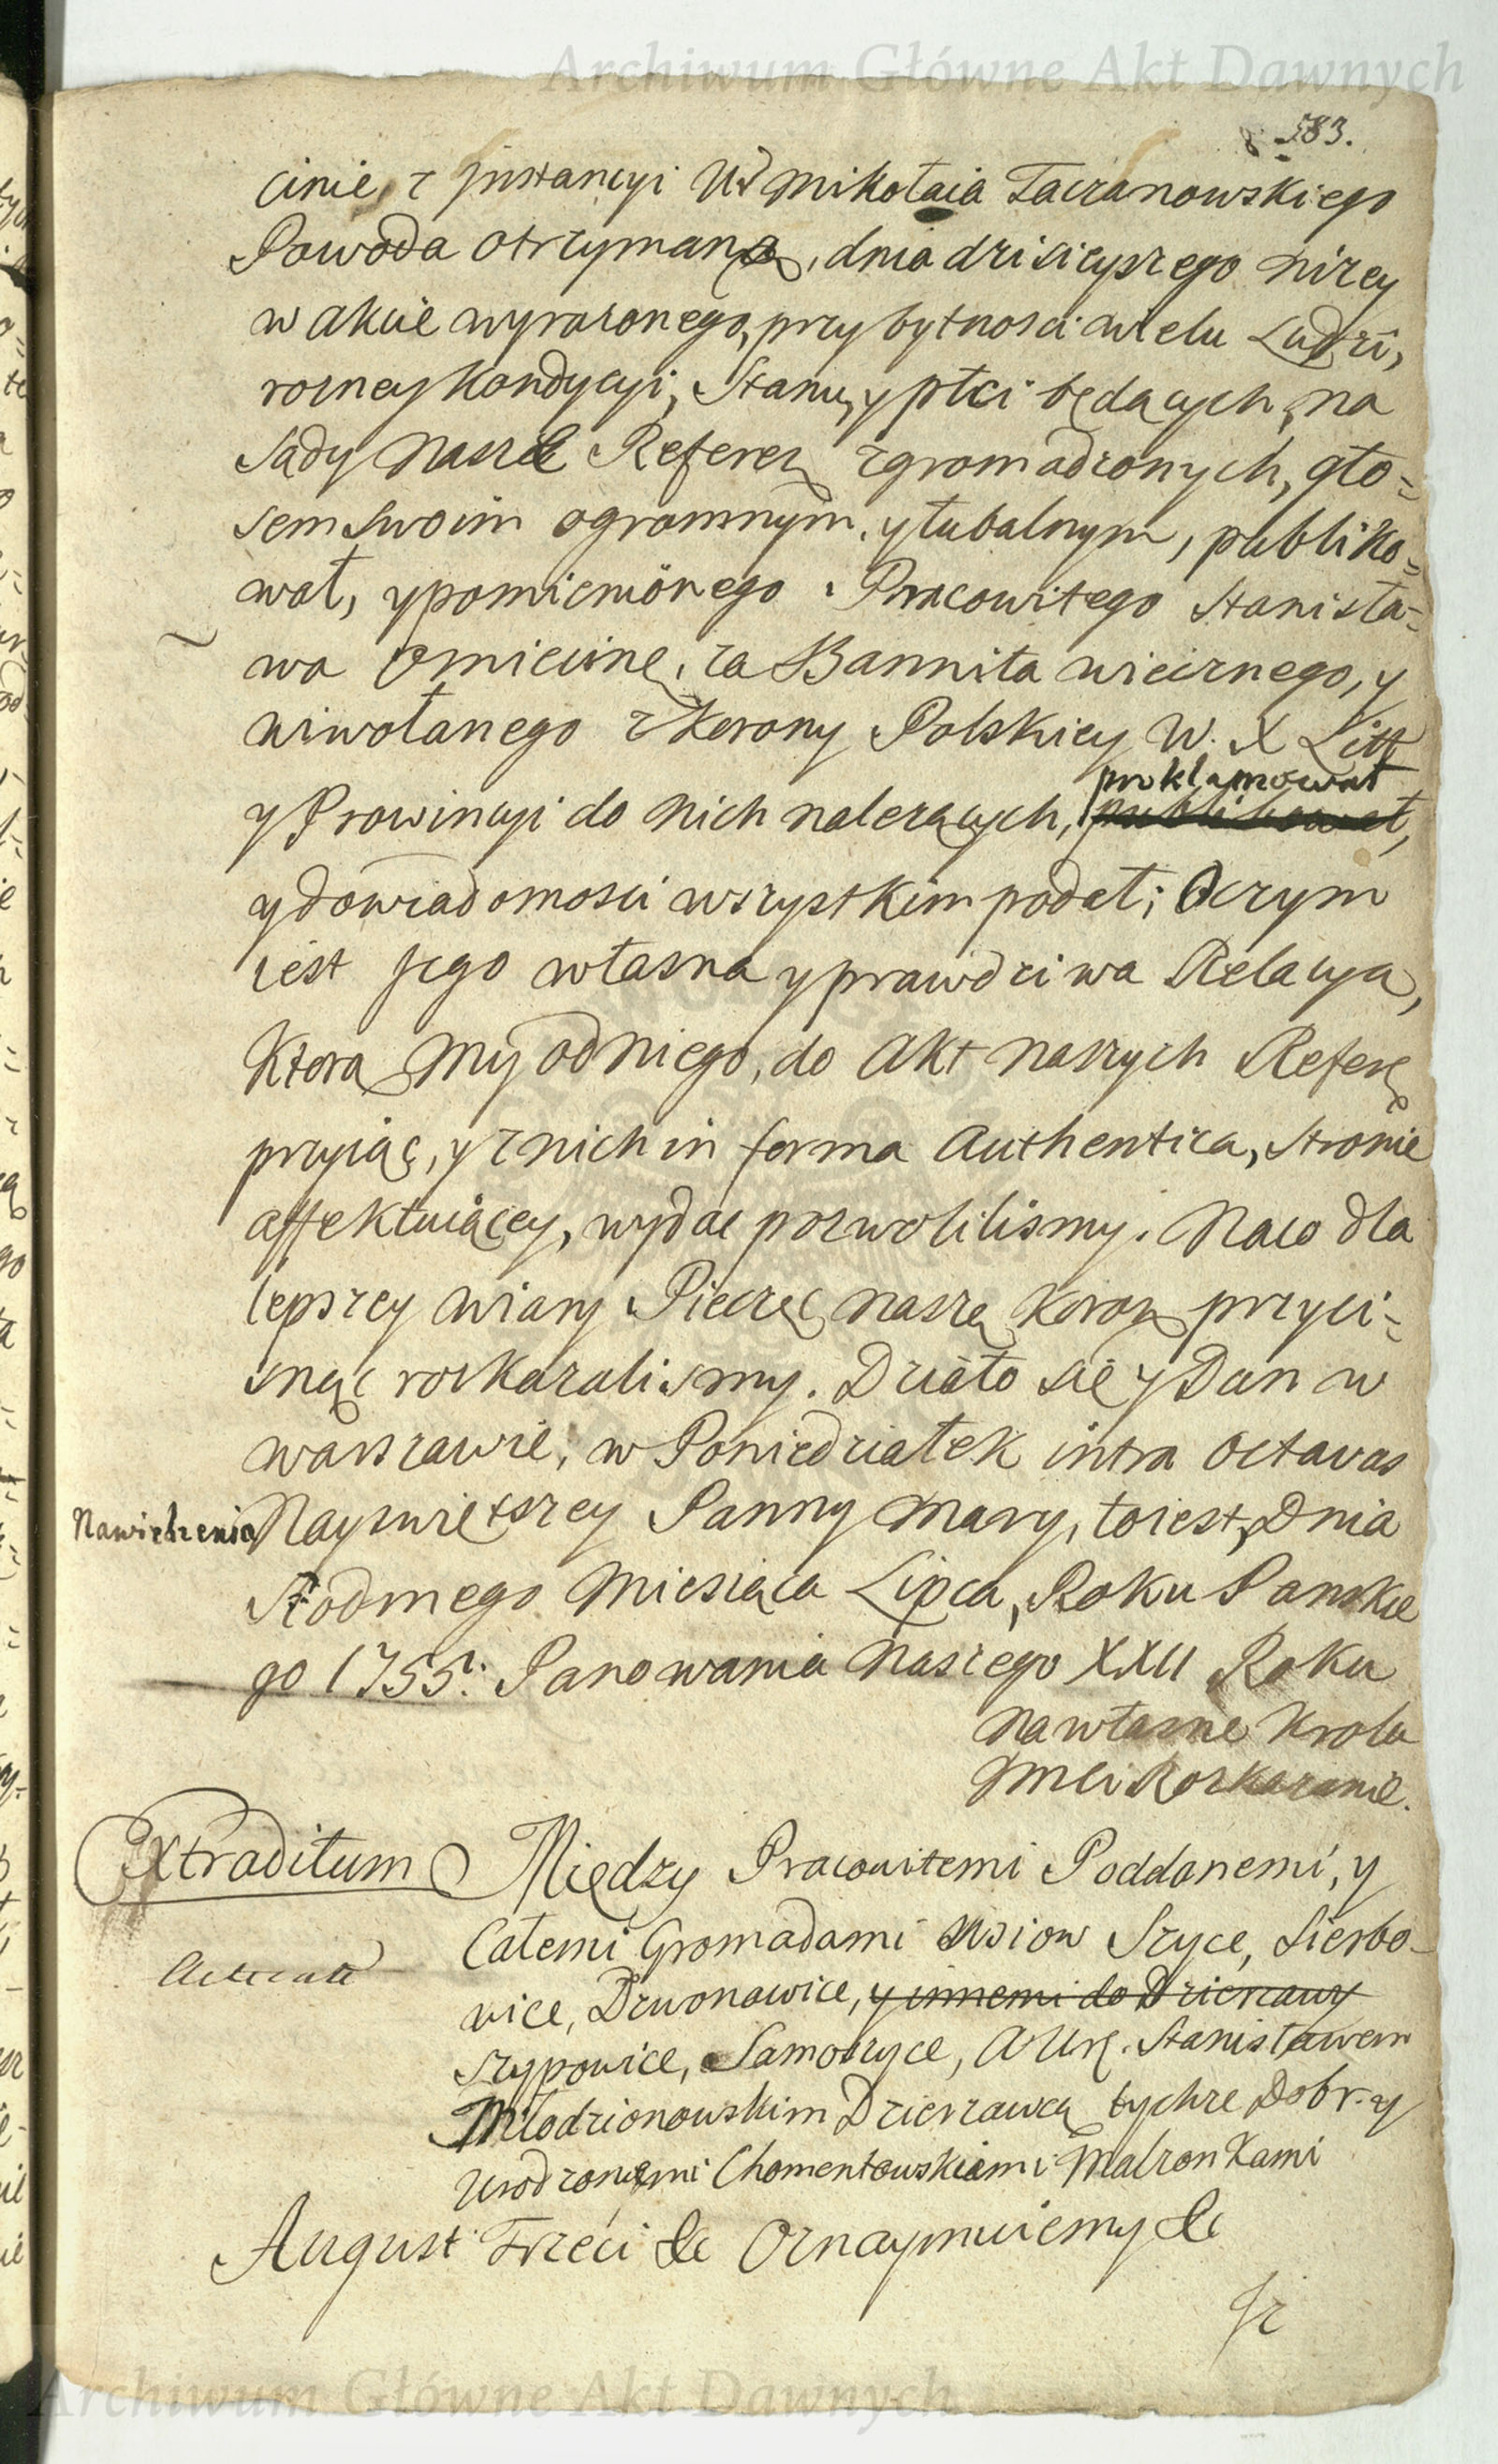 Archiwum Główne Akt Dawnych
583.
cinie, z Jnstancyi Ur Mikołaia Taczanowskiego
Powoda otrzymaną, dnia dzisieyszego nizey
w akcie wyrazonego, przy bytnosci wielu Ludzi,
rozney Kondycyi, Stanu, y płci będących, na
Sądy Nasze Referen zgromadzonych, gło=
sem swoim ogromnym, y tubalnym, publiko=
wał, y pomienionego Pracowitego Stanisła=
wa Omiecinę, za Bannita wiecznego, y
wiwołanego z Korony Polskiey W. X Litt
proklamował
y Prowincyi do nich nalezących, publikował,
y do wiadomosci wszystkim podał; Oczym
iest Jego własna y prawdziwa Relacya,
Ktorą My od Niego, do Akt naszych Referen
przyiąc, y z nich in forma Authentica, Stronie
affektuiącey, wydac pozwolilismy. Naco dla
lepszey wiary Pieczęc naszą Koron przyci=
snąc roskazalismy. Działo się y Dan w
Warszawie, w Poniedziałek intra Octavas
Nawiedzenia Nayswiętszey Panny Mary, toiest, Dnia
Siodmego Miesiąca Lipca, Roku Panskie
go 1755: Panowania Naszego XXII Roku
Na własne Krola
Jmci Roskazanie.
Extraditum Między Pracowitemi Poddanemi, y
Całemi Gromadami Wsiow Szyce, Sierbo-
wice, Dzwonowice, y innemi do Dzierzawy
Szypowice, Samoszyce, A Ur. Stanisławem
Młodzionowskim Dzierzawcą tychze Dobr. y
Urodzonemi Chomentowskiemi Małzonkami
August Trzeci &c Oznaymuiemy &c
Jz
Archiwum Główne Akt Dawnych